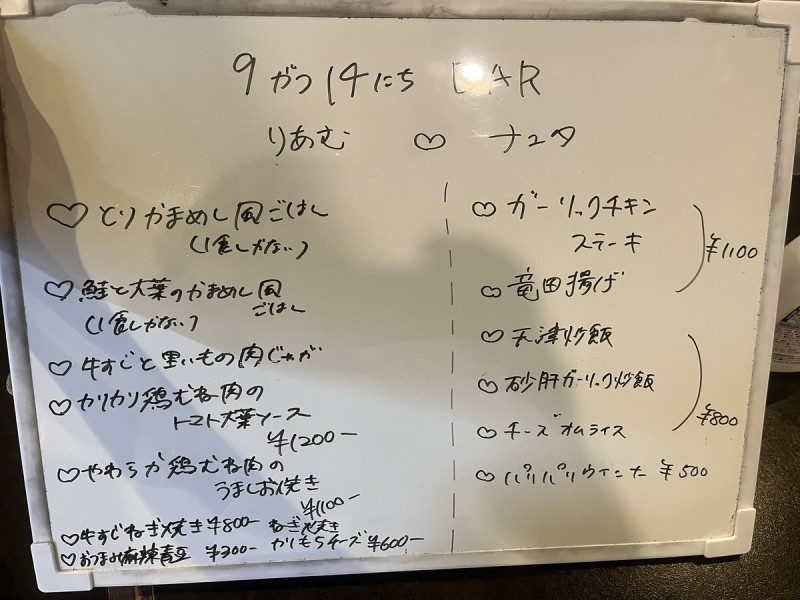 9がつ14にち BAR
りあむ ♡ ナユタ
♡とりかまめし風ごはん
(1食しかない)
♡鮭と大葉のかまめし風
ごはん
(1食しかない)
♡牛すじと里いもの肉じゃが
♡カリカリ鶏むね肉の
トマト大葉ソース
¥1200-
♡やわらか鶏むね肉の
うましお焼き
¥1100-
♡牛すじねぎ焼き¥800- ねぎ焼き
♡おつまみ麻辣青豆 ¥300- かいもちチーズ¥600-
♡ガーリックチキン
ステーキ
♡竜田揚げ
¥1100
♡天津炒飯
♡砂肝ガーリック炒飯
♡チーズオムライス
¥800
♡パリパリウインナー ¥500